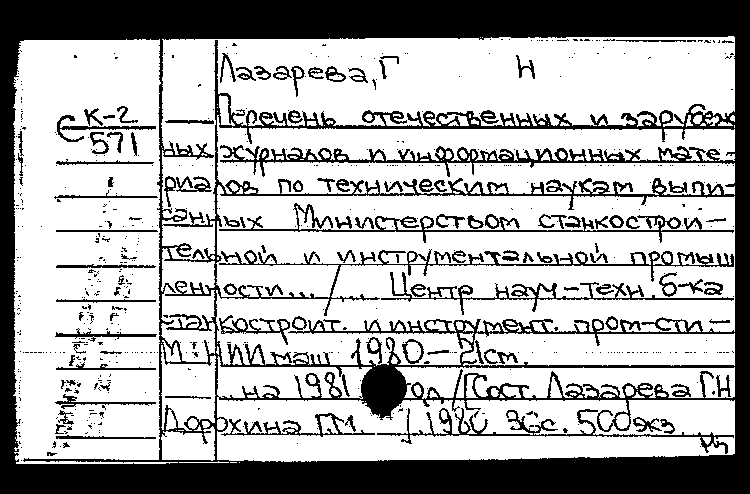 Лазарева, Г Н
К-2
С 571
Перечень отечественных и зарубеж
ных журналов и информационных мате-
риалов по техническим наукам, выпи-
санных Министерством станкострои-
тельной и инструментальной промыш
ленности... ... Центр науч.-техн. б-ка
станкостроит. и инструмент. пром-сти.-
М.: НИИмаш 1980.- 21см.
...на 1981 год / [Сост. Лазарева Г.Н
Дорохина Г.М. ]. 1980. 36с. 500экз.